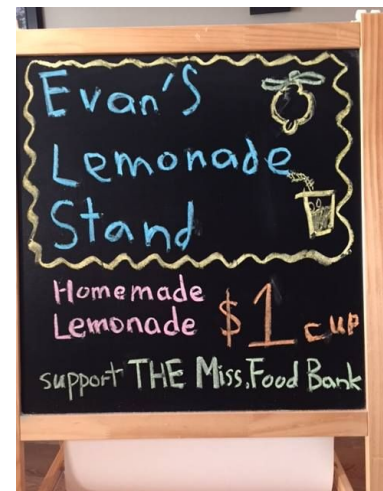 Evan's
Lemonade
Stand
Homemade
Lemonade $1 cup
support THE Miss. Food Bank